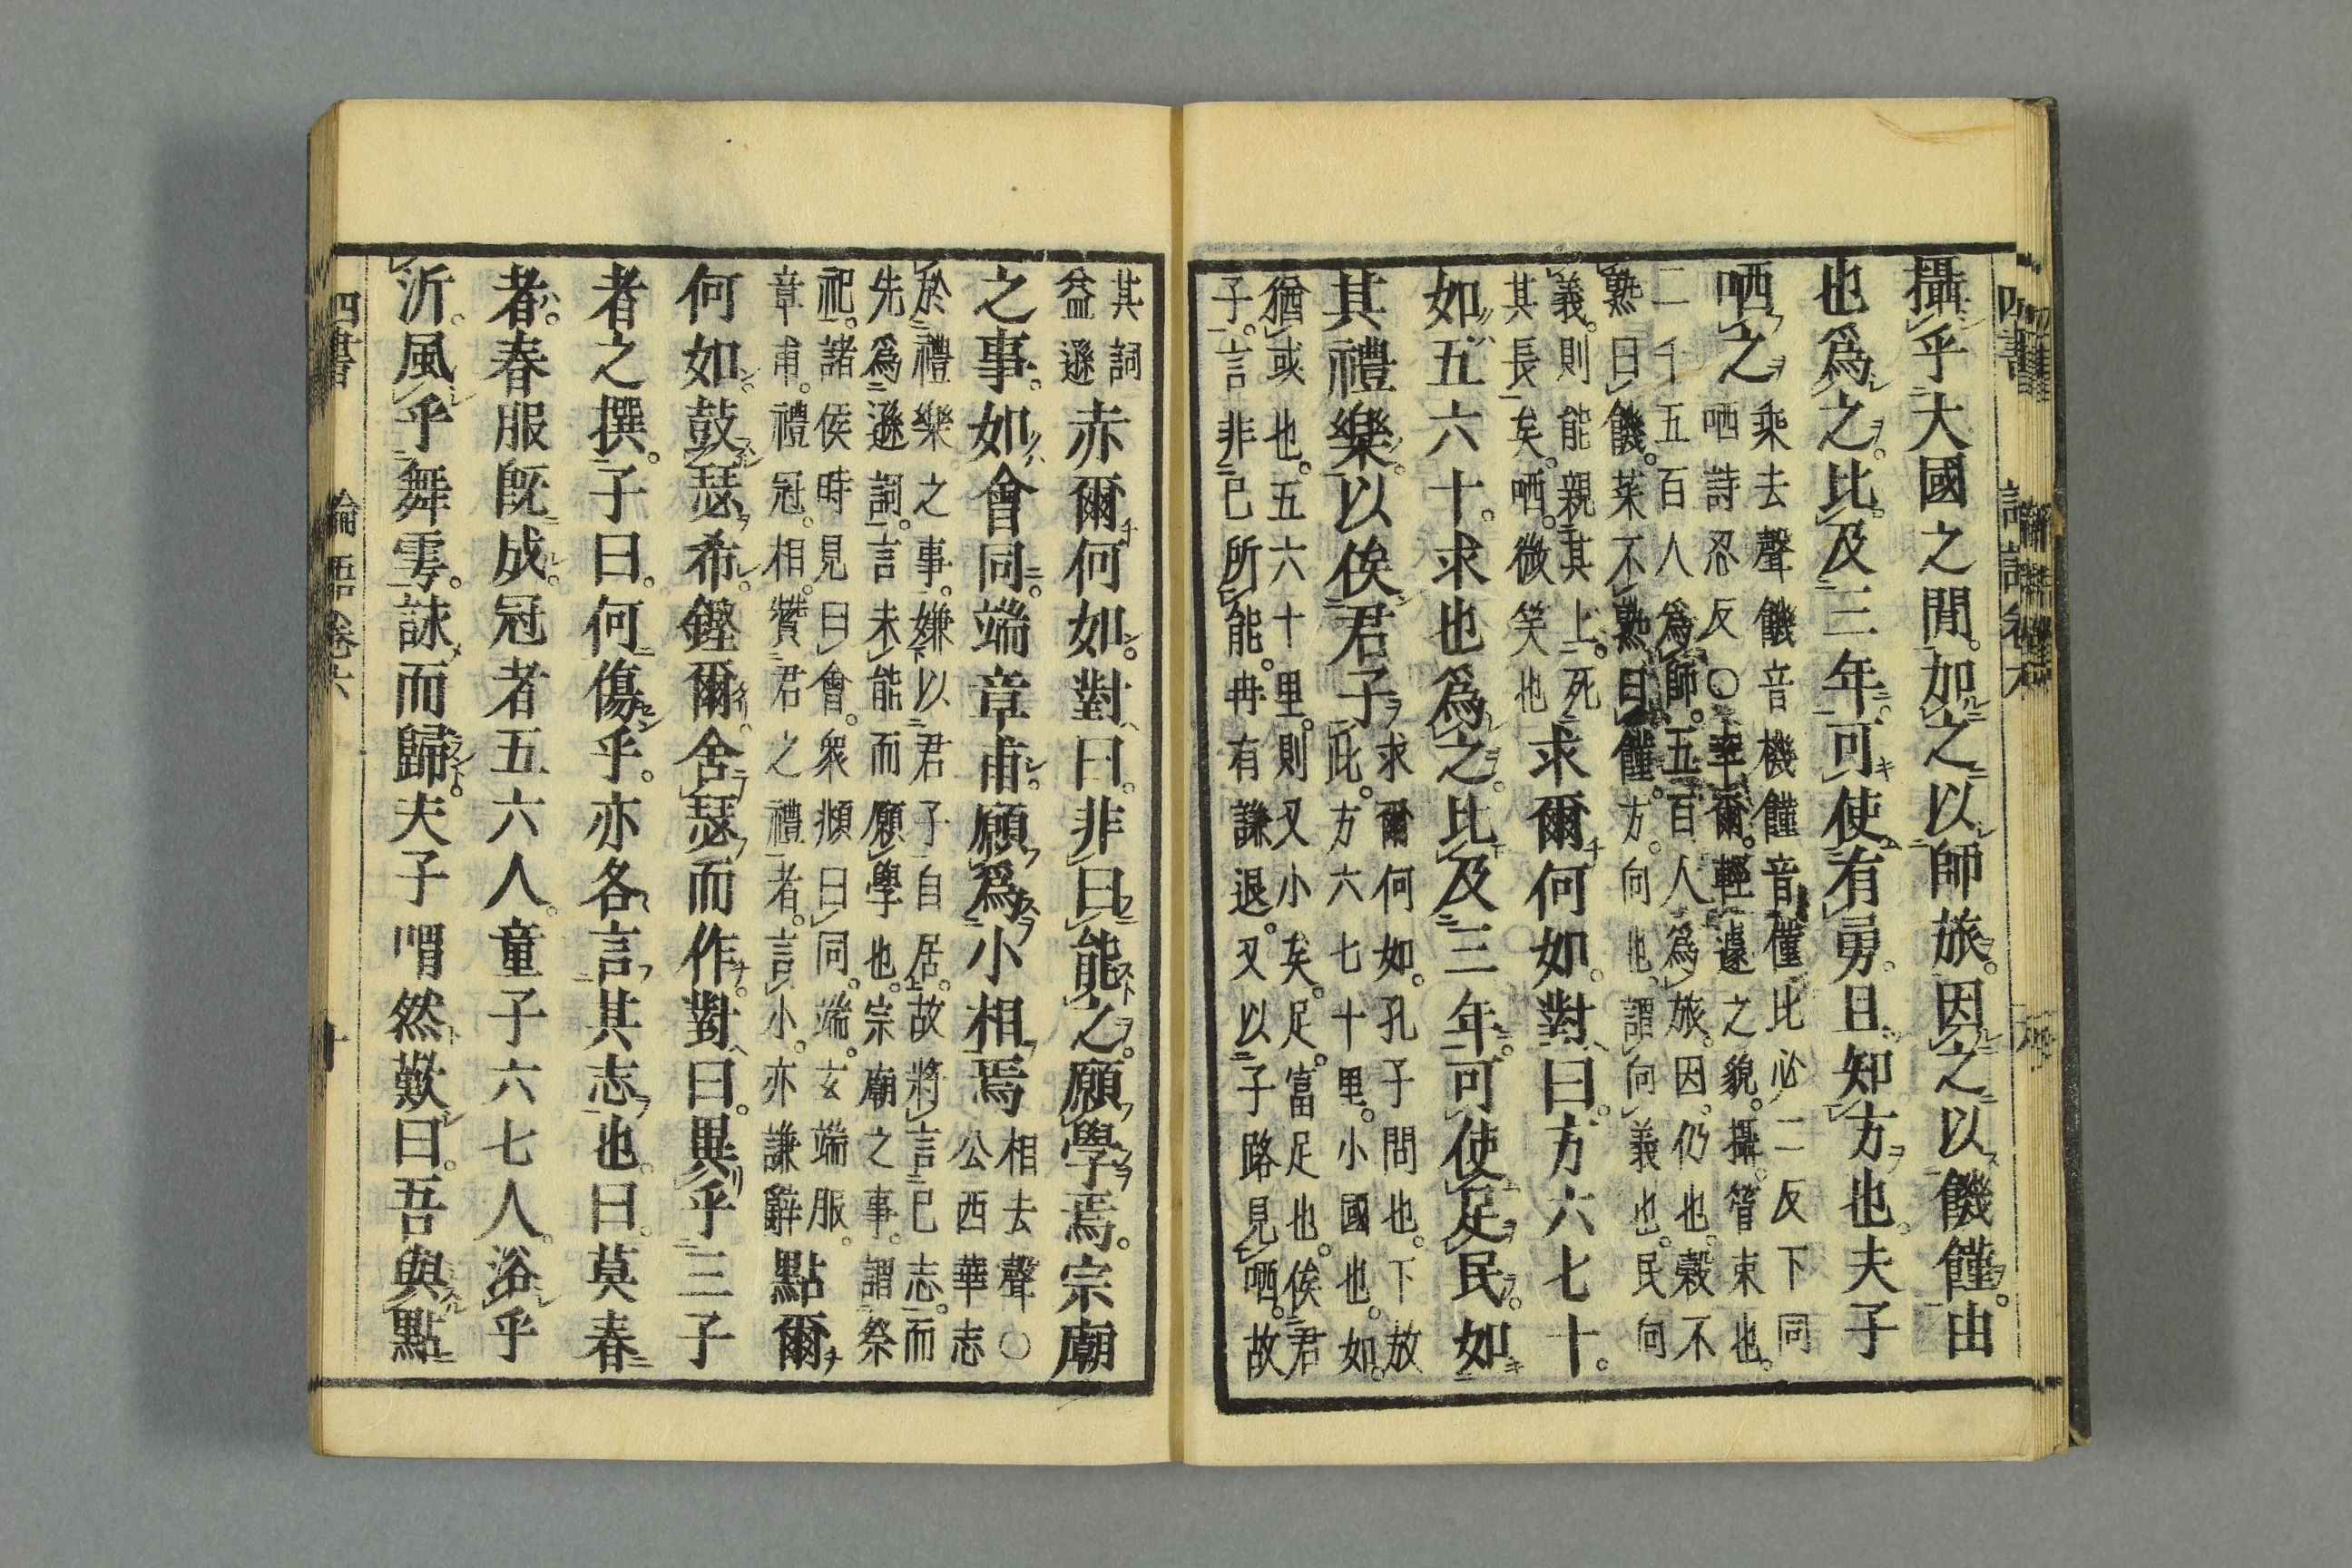 攝乎大國之閒。加之以師旅。因之以饑饉。由
也爲之。比及三年。可使有勇。且知方也。夫子
哂之。乘去聲饑音機饉音僅比必二反下同
哂詩忍反○率爾。輕遽之貌。攝。管束也。
二千五百人爲師。五百人爲旅。因。仍也。穀不
熟曰饑。菜不熟曰饉。方。向也。謂向義也。民向
義。則能親其上。死
其長矣。哂。微笑也
求爾何如。對曰。方六七十。
如五六十。求也爲之。比及三年。可使足民。如
其禮樂。以俟君子。求爾何如。孔子問也。下放
此。方六七十里。小國也。如。
猶或也。五六十里。則又小矣。足。富足也。俟君
子。言非己所能。冉有謙退。又以子路見哂。故
其詞
益遜
赤爾何如。對曰。非曰能之。願學焉。宗廟
之事。如會同。端章甫。願爲小相焉
相去聲○
公西華志
於禮樂之事。嫌以君子自居。故將言己志。而
先爲遜詞。言未能而願學也。宗廟之事。謂祭
祀。諸侯時見曰會。衆頫曰同。端。玄端服。
章甫。禮冠。相。贊君之禮者。言小。亦謙辭
點爾
何如。鼓瑟希。鏗爾。舍瑟而作。對曰。異乎三子
者之撰。子曰。何傷乎。亦各言其志也。曰。莫春
者。春服既成。冠者五六人。童子六七人。浴乎
沂。風乎舞雩。詠而歸。夫子喟然歎曰。吾與點
四書 論語卷六 十